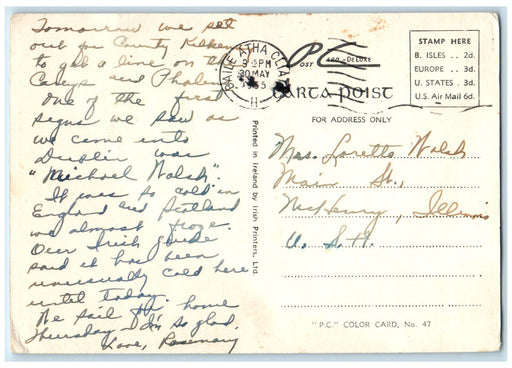 Tomorrow we set
out for County Kilkenny
to get a line on the
and
One of the first
signs we saw as
we came into
Dublin was
"Michael Walsh".
It was so cold in
England and Scotland
we almost froze.
Our Irish guide
said it has been
unusually cold here
until today.
We sail for home
Thursday - I'm so glad.
Love, Rosemary
BAILE ÁTHA CLIATH
9 - PM
30 MAY
H
POST CARD - DELUXE
CARTA POIST
FOR ADDRESS ONLY
STAMP HERE
B. ISLES .. 2d.
EUROPE .. 3d.
U. STATES . 3d.
U.S. Air Mail 6d.
Mrs. Loretto Walsh
Main St.,
McHenry, Illinois
U. S. A.
Printed in Ireland by Irish Printers, Ltd.
"P.C." COLOR CARD, No. 47